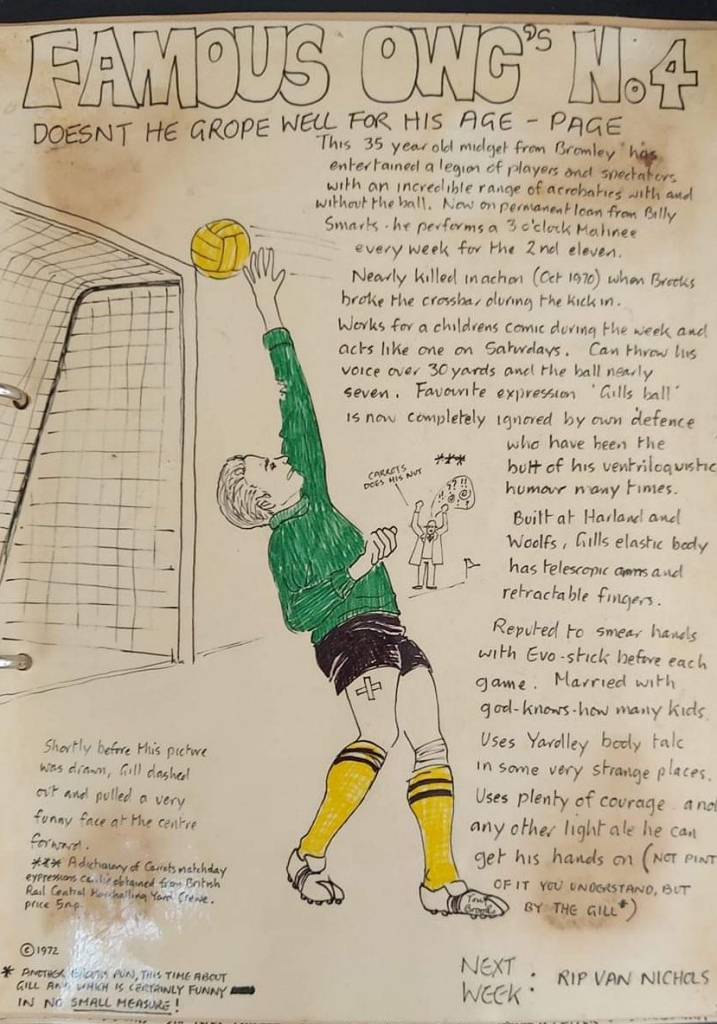 FAMOUS OWC's No.4
DOESNT HE GROPE WELL FOR HIS AGE - PAGE
This 35 year old midget from Bromley has
entertained a legion of players and spectators
with an incredible range of acrobatics with and
without the ball. Now on permanent loan from Billy
Smarts - he performs a 3 o'clock Matinee
every week for the 2nd eleven.
Nearly killed inaction (Oct 1970) when Brooks
broke the crossbar during the kick in.
Works for a childrens comic during the week and
acts like one on Saturdays. Can throw his
voice over 30 yards and the ball nearly
seven. Favourite expression 'Gills ball'
is now completely ignored by own defence
who have been the
butt of his ventriloquistic
humour many times.
***
CARROTS
DOES HIS NUT
??!!
Built at Harland and
Woolfs, Gills elastic body
has telescopic arms and
retractable fingers.
Reputed to smear hands
with Evo-stick before each
game. Married with
god-knows-how many kids.
Uses Yardley body talc
in some very strange places.
Uses plenty of courage and
any other light ale he can
get his hands on (NOT PINT
OF IT YOU UNDERSTAND, BUT
BY THE GILL*)
Shortly before this picture
was drawn, Gill dashed
out and pulled a very
funny face at the centre
forward.
*** A dictionary of Carrots matchday
expressions can be obtained from British
Rail Central Marshalling Yard Crewe.
price 5np.
©1972
* ANOTHER PUN, THIS TIME ABOUT
GILL AND WHICH IS CERTAINLY FUNNY
IN NO SMALL MEASURE!
NEXT
WEEK: RIP VAN NICHOLS